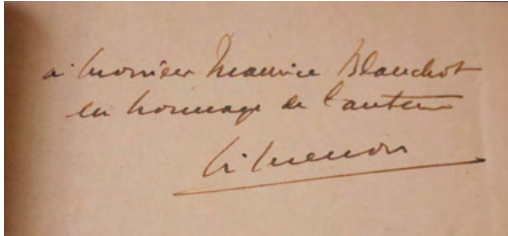 à Monsieur Maurice Blanchot
en hommage de l'auteur